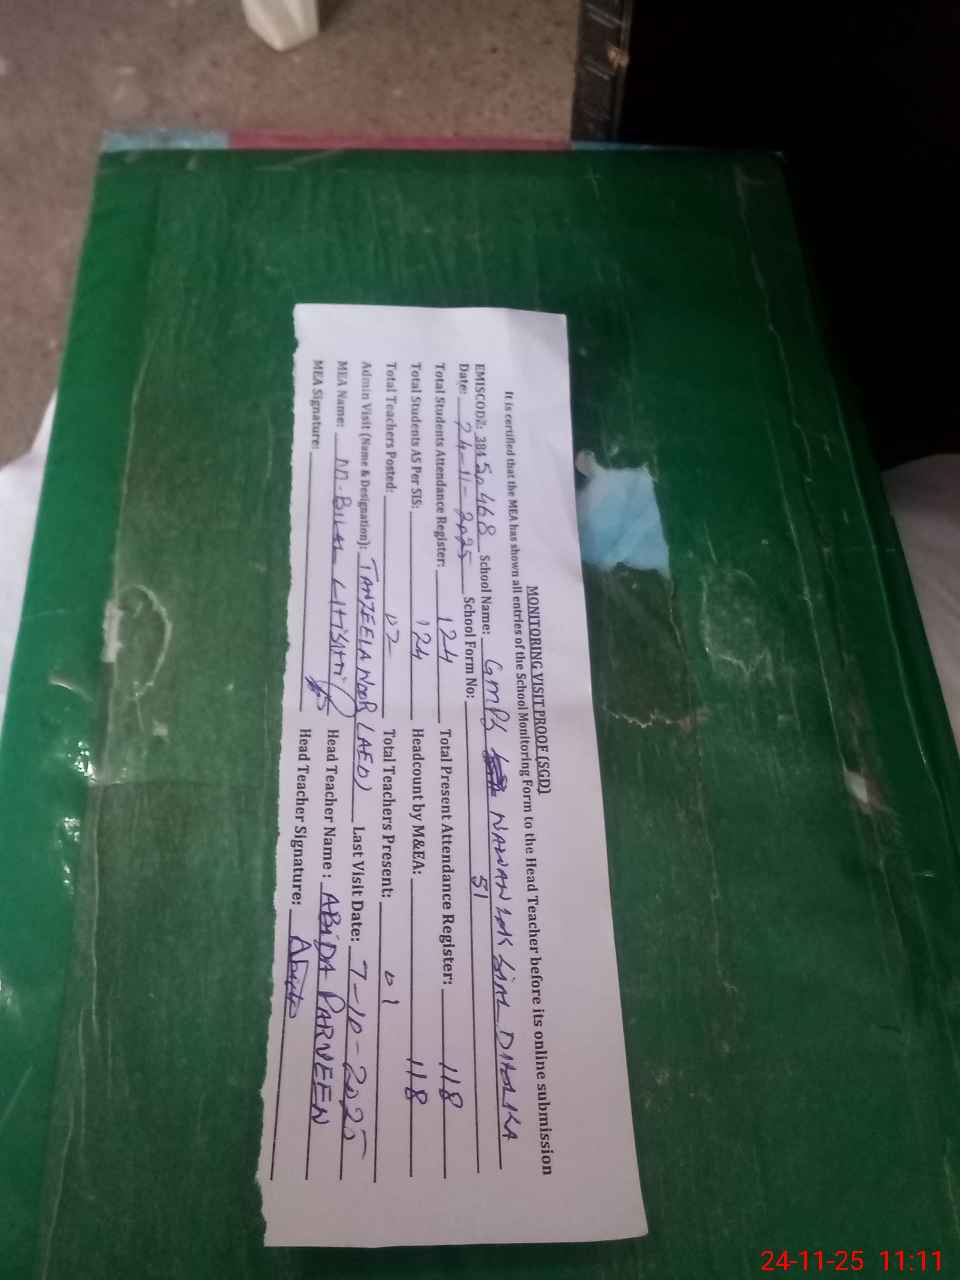 MONITORING VISIT PROOF (SGD)
It is certified that the MEA has shown all entries of the School Monitoring Form to the Head Teacher before its online submission
EMISCODE: 38450468 School Name: GMPS NAWAN LOK DHALIKA
Date: 24-11-2025 School Form No: 51
Total Students Attendance Register: 124 Total Present Attendance Register: 118
Total Students AS Per SIS: 124 Headcount by M&EA: 118
Total Teachers Posted: 02 Total Teachers Present: 01
Admin Visit (Name & Designation): TANZEELA NOOR (AEO) Last Visit Date: 7-10-2025
MEA Name: M. BILAL Head Teacher Name : ABIDA PARVEEN
MEA Signature: Head Teacher Signature: Abida
24-11-25 11:11